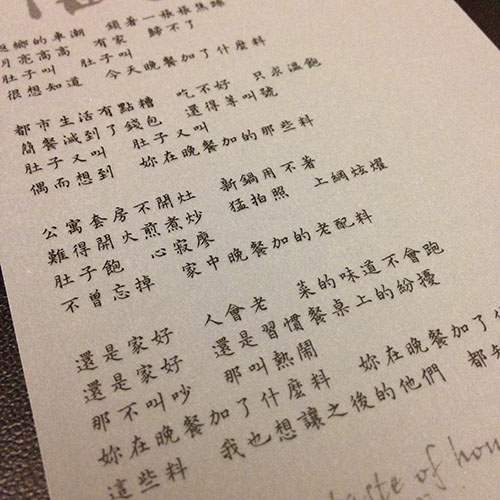 返鄉的車潮　鎖著一張張焦躁
月亮高高　有家　歸不了
肚子叫　肚子叫
很想知道　今天晚餐加了什麼料
都市生活有點糟　吃不好　只求溫飽
簡餐減到了錢包　還得等叫號
肚子又叫　肚子又叫
偶而想到　妳在晚餐加的那些料
公寓套房不開灶　新鍋用不著
難得開火煎煮炒　猛拍照　上網炫耀
肚子飽　心寂寥
不曾忘掉　家中晚餐加的老配料
還是家好　人會老　菜的味道不會跑
還是家好　還是習慣餐桌上的紛擾
那不叫吵　那叫熱鬧
妳在晚餐加了什麼料　妳在晚餐加了什
這些料　我也想讓之後的他們　都
taste of hom